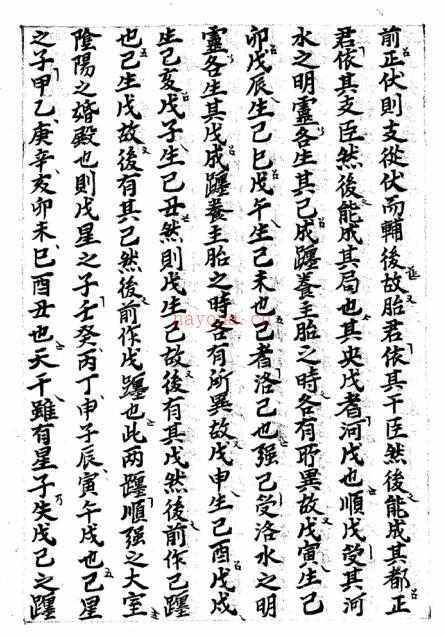 前正伏則支從伏而輔後故胎君依其干臣然後能成其都正
君依其支臣然後能成其局也其央戊者河戊也順戊受其河
水之明靈各生其己成躔養主胎之時各有所異故戊寅生己
卯戊辰生己巳戊午生己未也己者洛己也强己受洛水之明
靈各生其戊成躔養主胎之時各有所異故戊申生己酉戊戌
生己亥戊子生己丑然則戊生己故後有其戊然後前作己躔
也己生戊故後有其己然後前作戊躔也此两躔順强之大室
陰陽之婚殿也則戊星之子壬癸丙丁申子辰寅午戌也己星
之子甲乙庚辛亥卯未巳酉丑也天干雖有星子失戊己之躔
nayona.cn